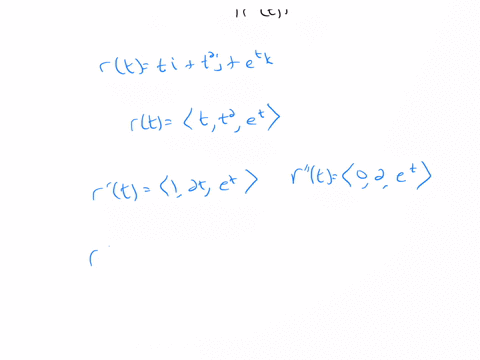 r(t) = t i + t²j + eᵗk
r(t) = ⟨t, t², eᵗ⟩
r'(t) = ⟨1, 2t, eᵗ⟩ r''(t) = ⟨0, 2, eᵗ⟩
r